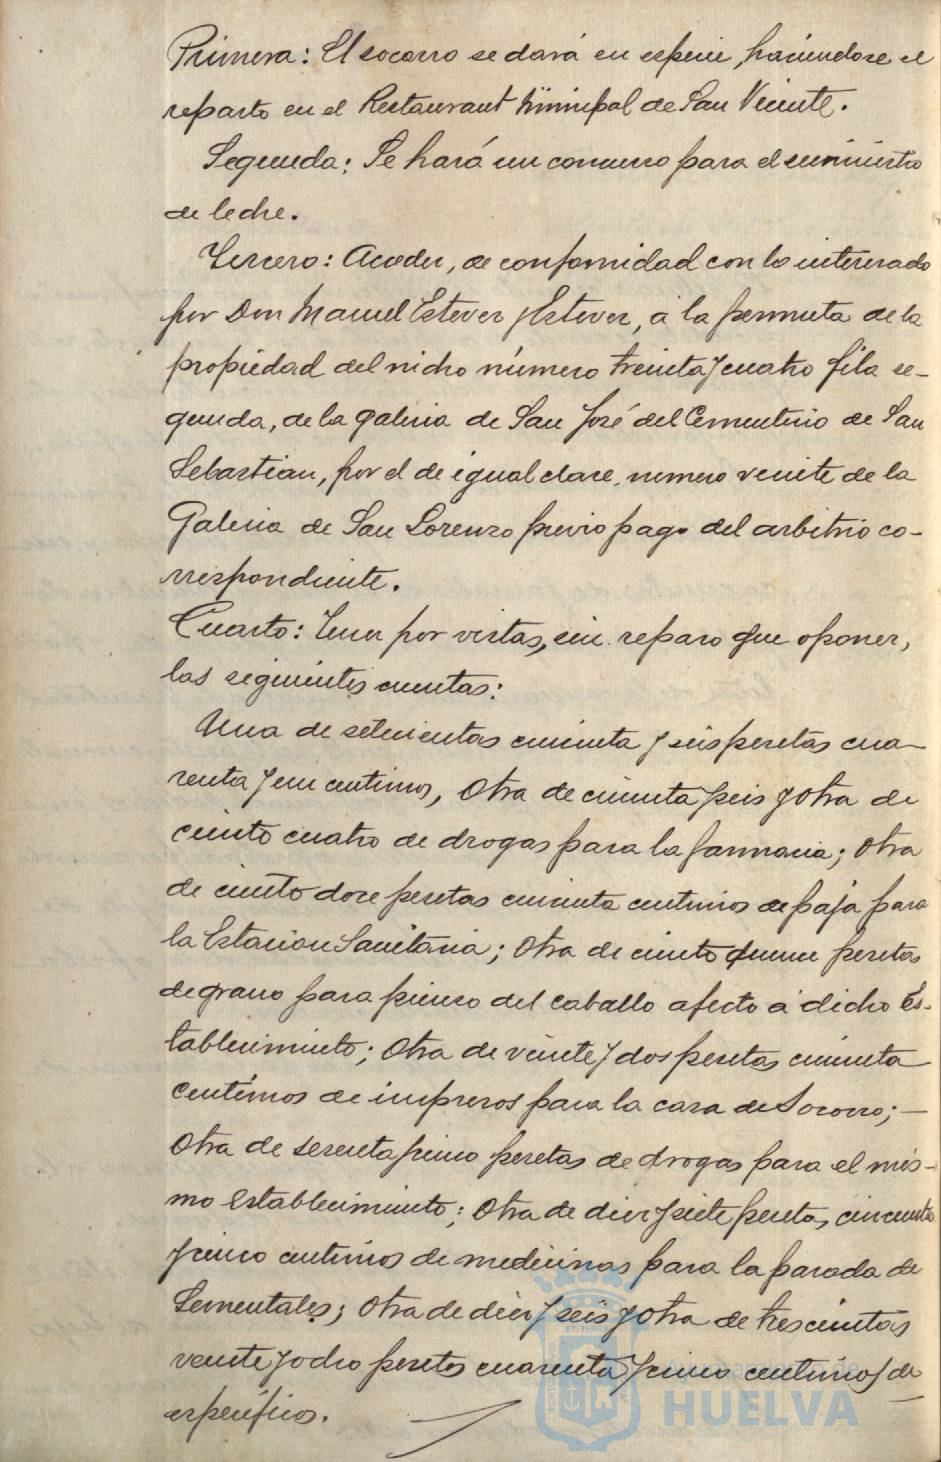 Primera: El socorro se dará en especie, haciendose el
reparto en el Restaurant Municipal de San Vicente.
Segunda: Se hará un concurso para el suministro
de leche.
Tercero: Acceder, de conformidad con lo interesado
por Don Manuel Estevez y Estevez, a la permuta de la
propiedad del nicho número treinta y cuatro fila se-
gunda, de la galeria de San José del Cementerio de San
Sebastian, por el de igual clase, numero veinte de la
Galeria de San Lorenzo previo pago del arbitrio co-
rrespondiente.
Cuarto: Tener por vistas, sin reparo que oponer,
las siguientes cuentas:
Una de setecientas cincuenta y seis pesetas cua-
renta y un centimos, Otra de cincuenta y seis y otra de
ciento cuatro de drogas para la farmacia; Otra
de ciento doce pesetas cincuenta centimos de paja para
la Estacion Sanitaria; Otra de ciento quince pesetas
de grano para pienso del caballo afecto a dicho Es-
tablecimiento; Otra de veinte y dos pesetas cincuenta
centimos de impresos para la casa de Socorro;-
Otra de sesenta y cinco pesetas de drogas para el mis-
mo establecimiento; Otra de diez y siete pesetas, cincuenta
y cinco centimos de medicinas para la parada de
Sementales; Otra de diez y seis y otra de trescientas
veinte y ocho pesetas cuarenta y cinco centimos de
especificos.
Ayuntamiento de
HUELVA